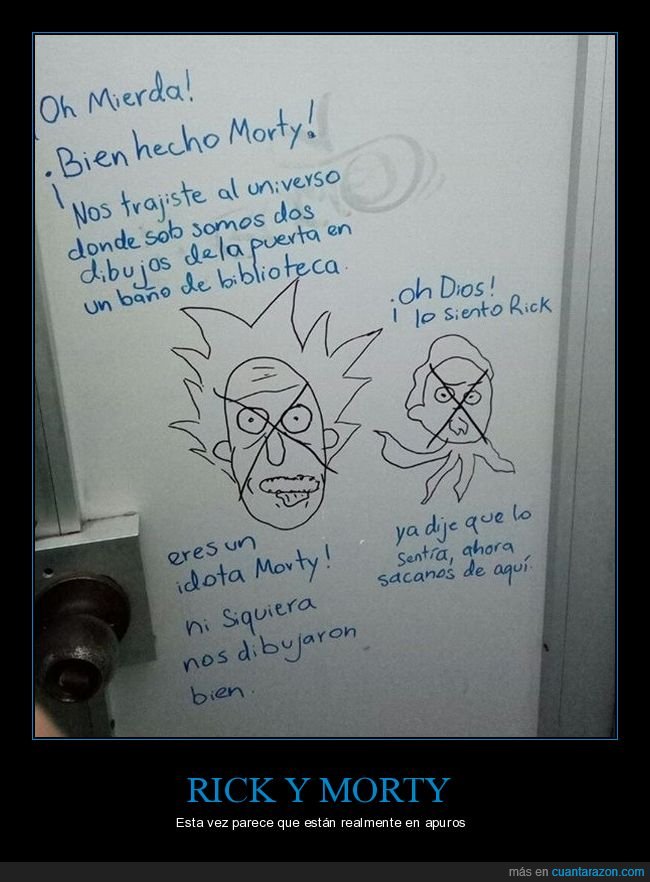 Oh Mierda!
¡Bien hecho Morty!
Nos trajiste al universo
donde sob somos dos
dibujos de la puerta en
un baño de biblioteca.
¡oh Dios!
lo siento Rick
eres un
idota Morty!
ni siquiera
nos dibujaron
bien.
ya dije que lo
sentía, ahora
sacanos de aquí.
RICK Y MORTY
Esta vez parece que están realmente en apuros
más en cuantarazon.com